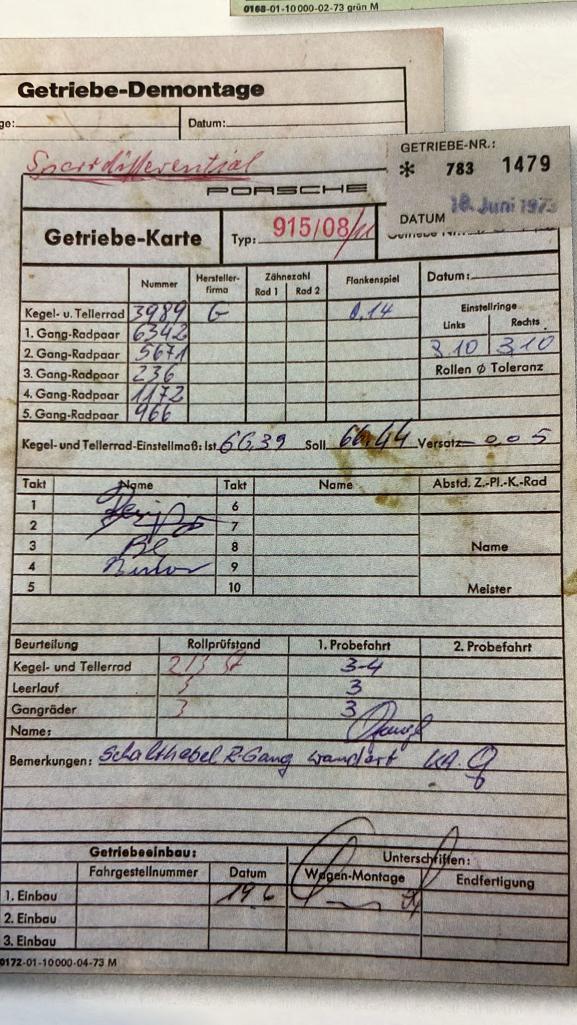 0168-01-10000-02-73 grün M
Getriebe-Demontage
ge: Datum:
Sperrdifferential
PORSCHE
GETRIEBE-NR.:
* 783 1479
DATUM 18. Juni 1973
Getriebe-Karte Typ: 915/08/11
Nummer Hersteller-firma Zähnezahl Rad 1 Rad 2 Flankenspiel Datum:
Kegel- u. Tellerrad 3989 G 0.14 Einstellringe
1. Gang-Radpaar 6342 Links Rechts
2. Gang-Radpaar 5671 3.10 3.10
3. Gang-Radpaar 236 Rollen Ø Toleranz
4. Gang-Radpaar 1172
5. Gang-Radpaar 966
Kegel- und Tellerrad-Einstellmaß: Ist 66,39 Soll 66,44 Versatz - 0,05
Takt Name Takt Name Abstd. Z.-Pl.-K.-Rad
1 6
2 7
3 8 Name
4 9
5 10 Meister
Beurteilung Rollprüfstand 1. Probefahrt 2. Probefahrt
Kegel- und Tellerrad 3-4
Leerlauf 3 3
Gangräder 3 3
Name:
Bemerkungen: Schalthebel R-Gang wandert
Getriebeeinbau: Unterschriften:
Fahrgestellnummer Datum Wagen-Montage Endfertigung
1. Einbau 19.6
2. Einbau
3. Einbau
0172-01-10000-04-73 M